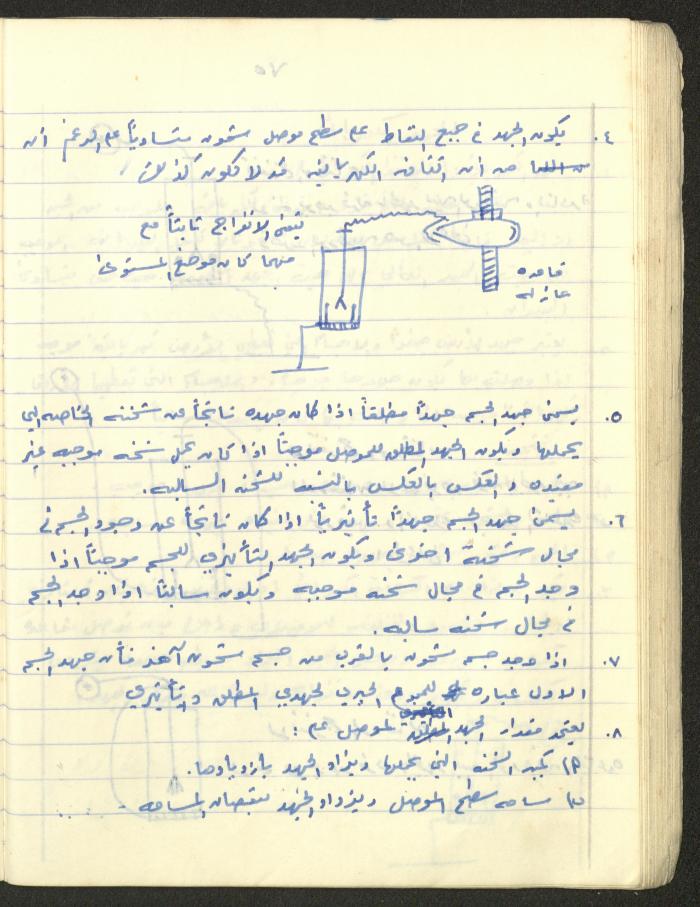 ٧٥
٤. يكون الجهد في جميع النقاط على سطح موصل مشحون متساوياً على الرغم ان
من ان الكثافة الكهربائية قد لا تكون كذلك
يبقى الانفراج ثابتاً مع
مهما كان موضع المستوى
قاعده
عازله
٥. يسمى جهد الجسم جهداً مطلقاً اذا كان جهده ناتجاً من شحنته الخاصه التي
يحملها ويكون الجهد المطلق للموصل موجباً اذا كان يحمل شحنه موجبه غير
مقيده والعكس بالعكس بالنسبه للشحنه السالبه.
٦. يسمى جهد الجسم جهداً تأثيرياً اذا كان ناتجاً عن وجود الجسم في
مجال شحنة اخرى ويكون الجهد التأثيري للجسم موجباً اذا
وجد الجسم في مجال شحنه موجبه ويكون سالباً اذا وجد الجسم
في مجال شحنه سالبه.
٧. اذا وجد جسم مشحون بالقرب من جسم مشحون آخر فأن جهد الجسم
الاول عباره المجموع الجبري لجهدي المطلق والتأثيري
٨. يعتمد مقدار الجهد للموصل على :
أ) كمية الشحنه التي يحملها ويزداد الجهد بازديادها.
ب) مساحه سطح الموصل ويزداد الجهد بنقصان المساحه.